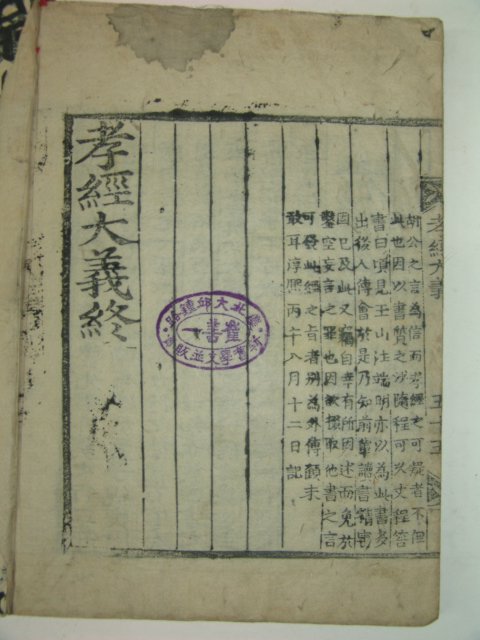 孝經大義
五十五
胡公之言為信而孝經之可疑者不但
此也因以書質之沙隨程可久丈程答
書曰頃見玉山汪端明亦以為此書多
出後人傅會於是乃知前輩讀書精審
固已及此又竊自幸有所因述而免於
鑿空妄言之罪也因欲掇取他書之言
可發此經之旨者別為外傳顧未
敢耳淳熙丙午八月十二日記
孝經大義終